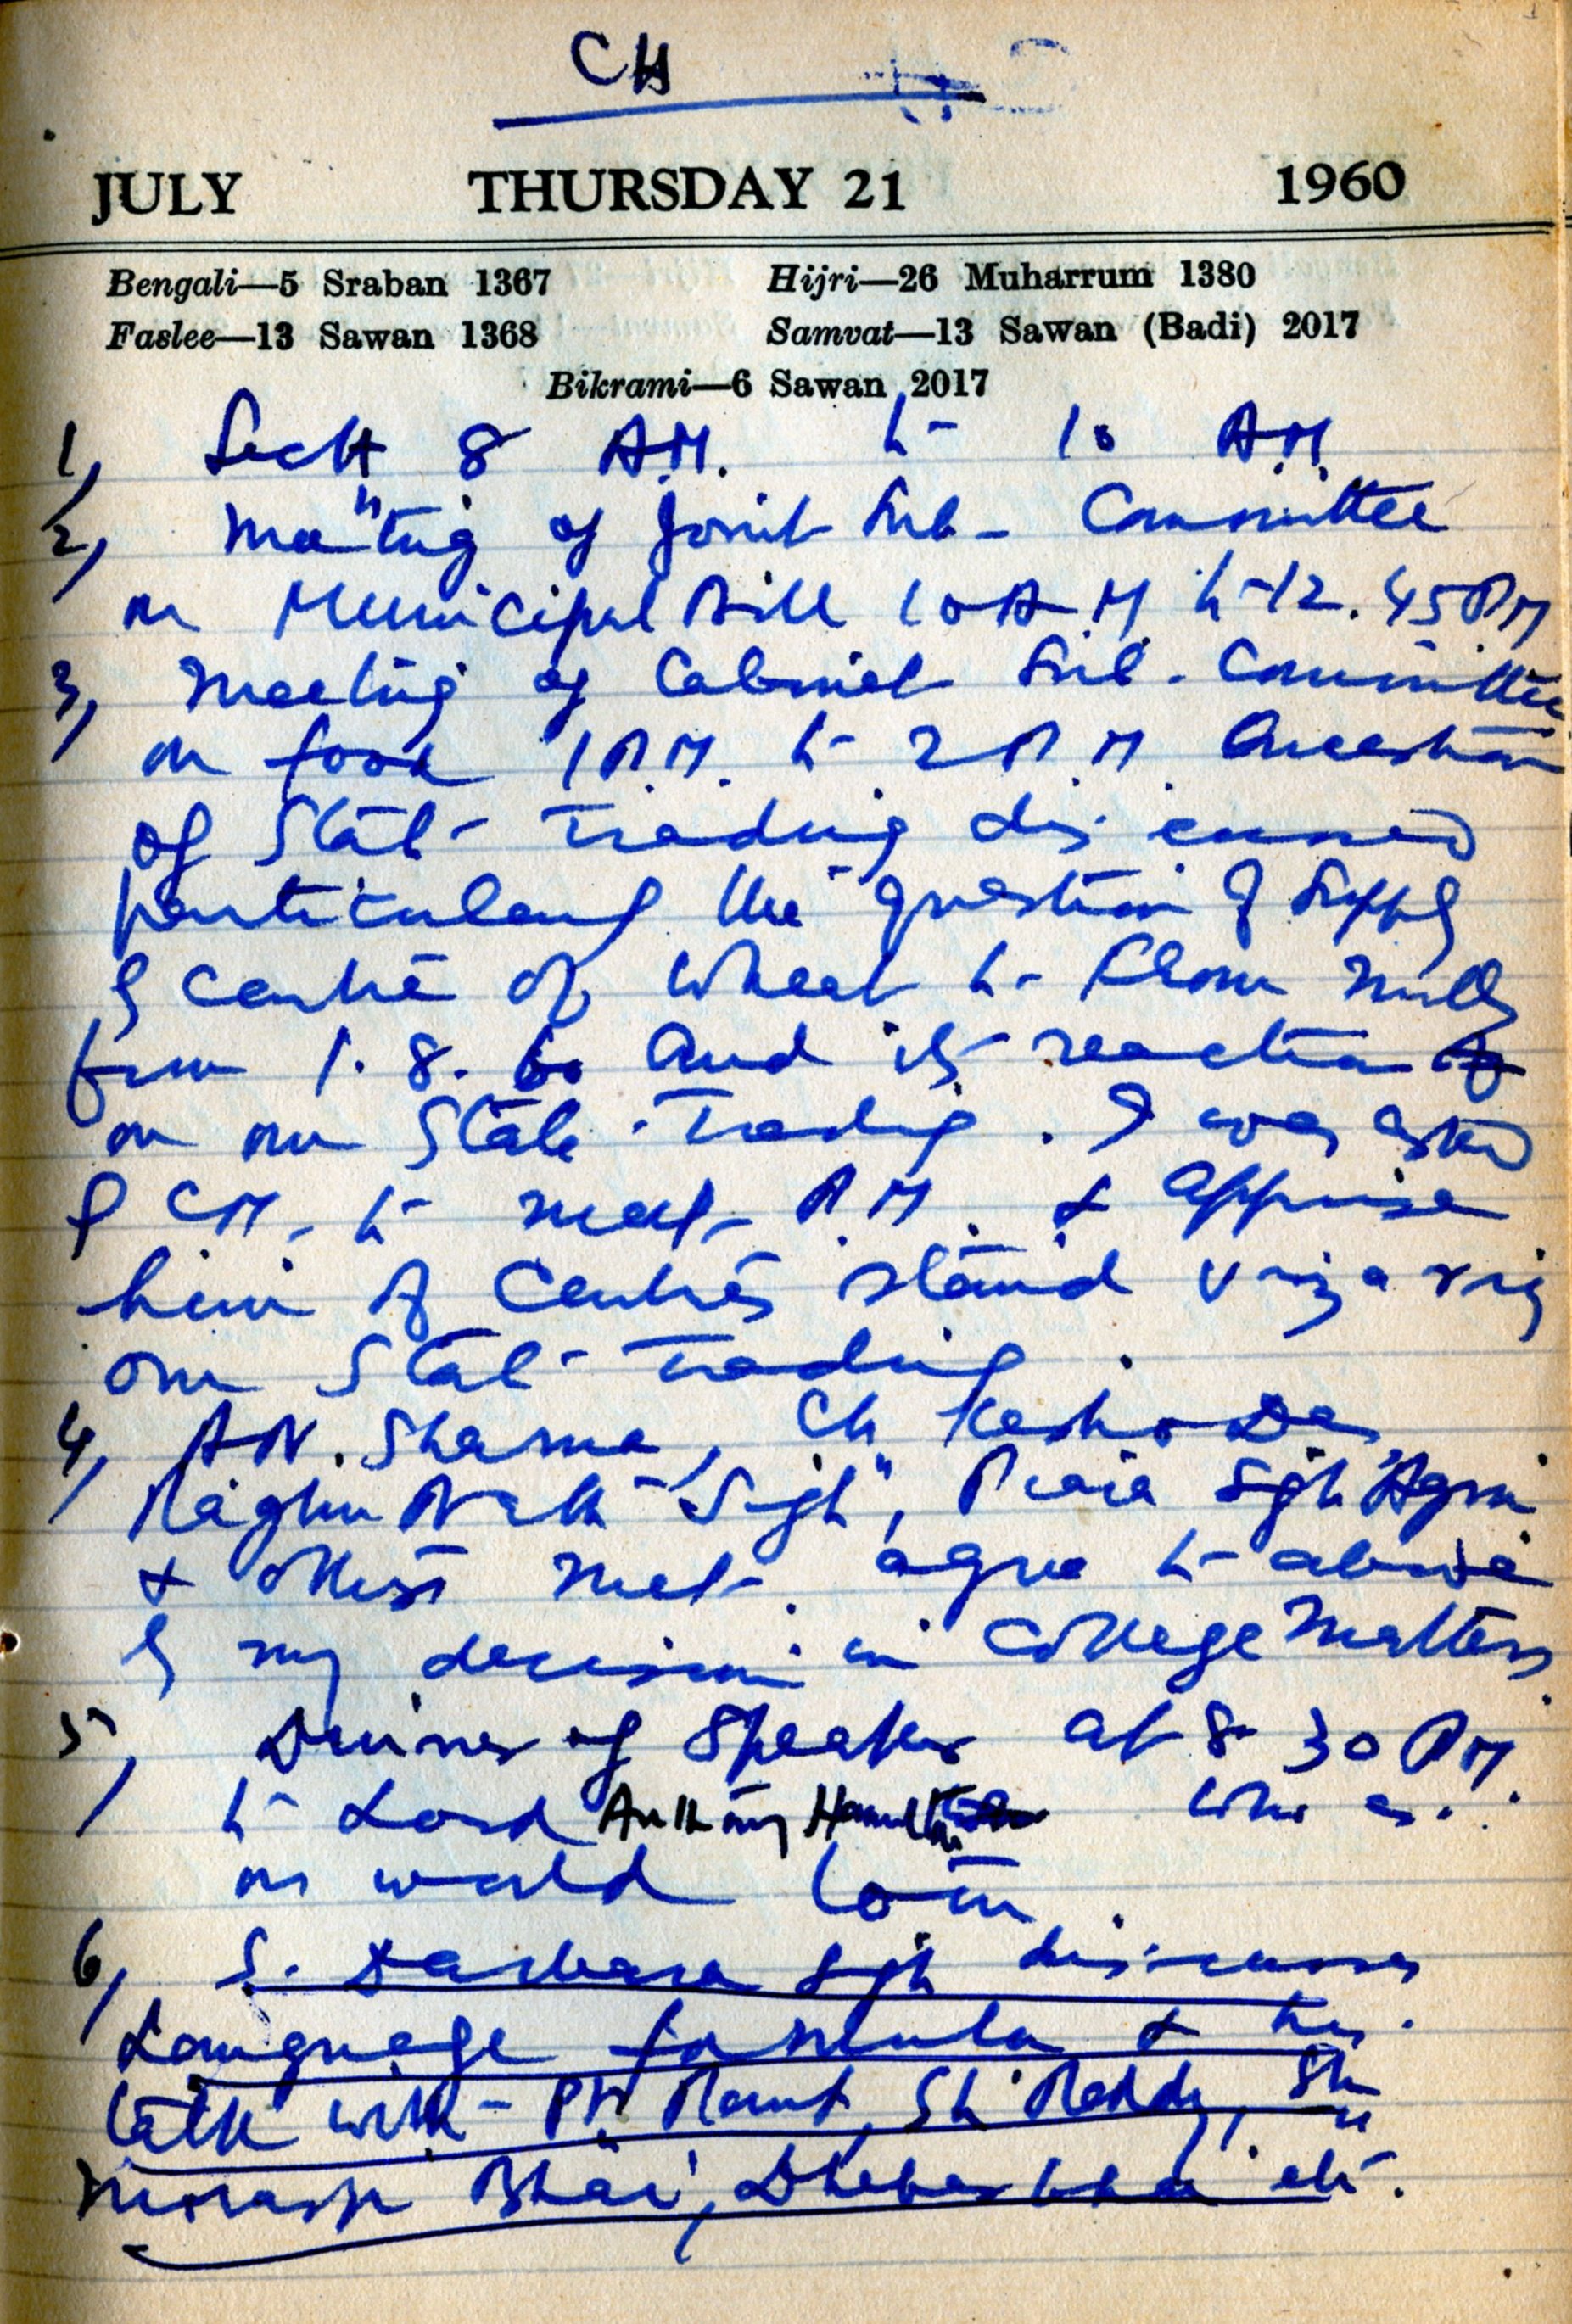 CH
JULY THURSDAY 21 1960
Bengali—5 Sraban 1367 Hijri—26 Muharrum 1380
Faslee—13 Sawan 1368 Samvat—13 Sawan (Badi) 2017
Bikrami—6 Sawan 2017
1, Sectt 8 A.M. to 10 A.M.
2, Meeting of Joint Sub-Committee
on Municipal Bill 10 A.M to 12.45 P.M
3, Meeting of Cabinet Sub-Committee
on food 1 P.M. to 2 P.M. Question
of State Trading discussed
particularly the question of supply
by Centre of wheat to Flour Mills
from 1.8.60 and its reaction
on our State Trading. I was asked
by CM. to meet P.M. & apprise
him of Centre's stand viz a viz
our State Trading.
4, A.N. Sharma, Ch Kesho Das
Raghu Nath Singh, Piara Sgh Agni
& others met. agree to abide
by my decision in College Matters.
5, Dinner of Speaker at 8-30 P.M.
to Lord Anthony Hamilton who is
on world tour.
6, S. Darbara Sgh discusses
Language formula & his
talk with Pt. Pant, Sh Reddy, Shri
Morarji Bhai, Dhebar bhai etc.